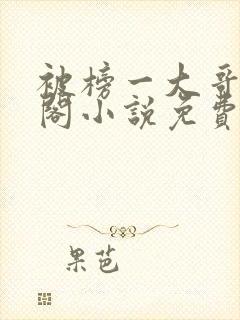 被榜一大哥
阁小说免费
果芭